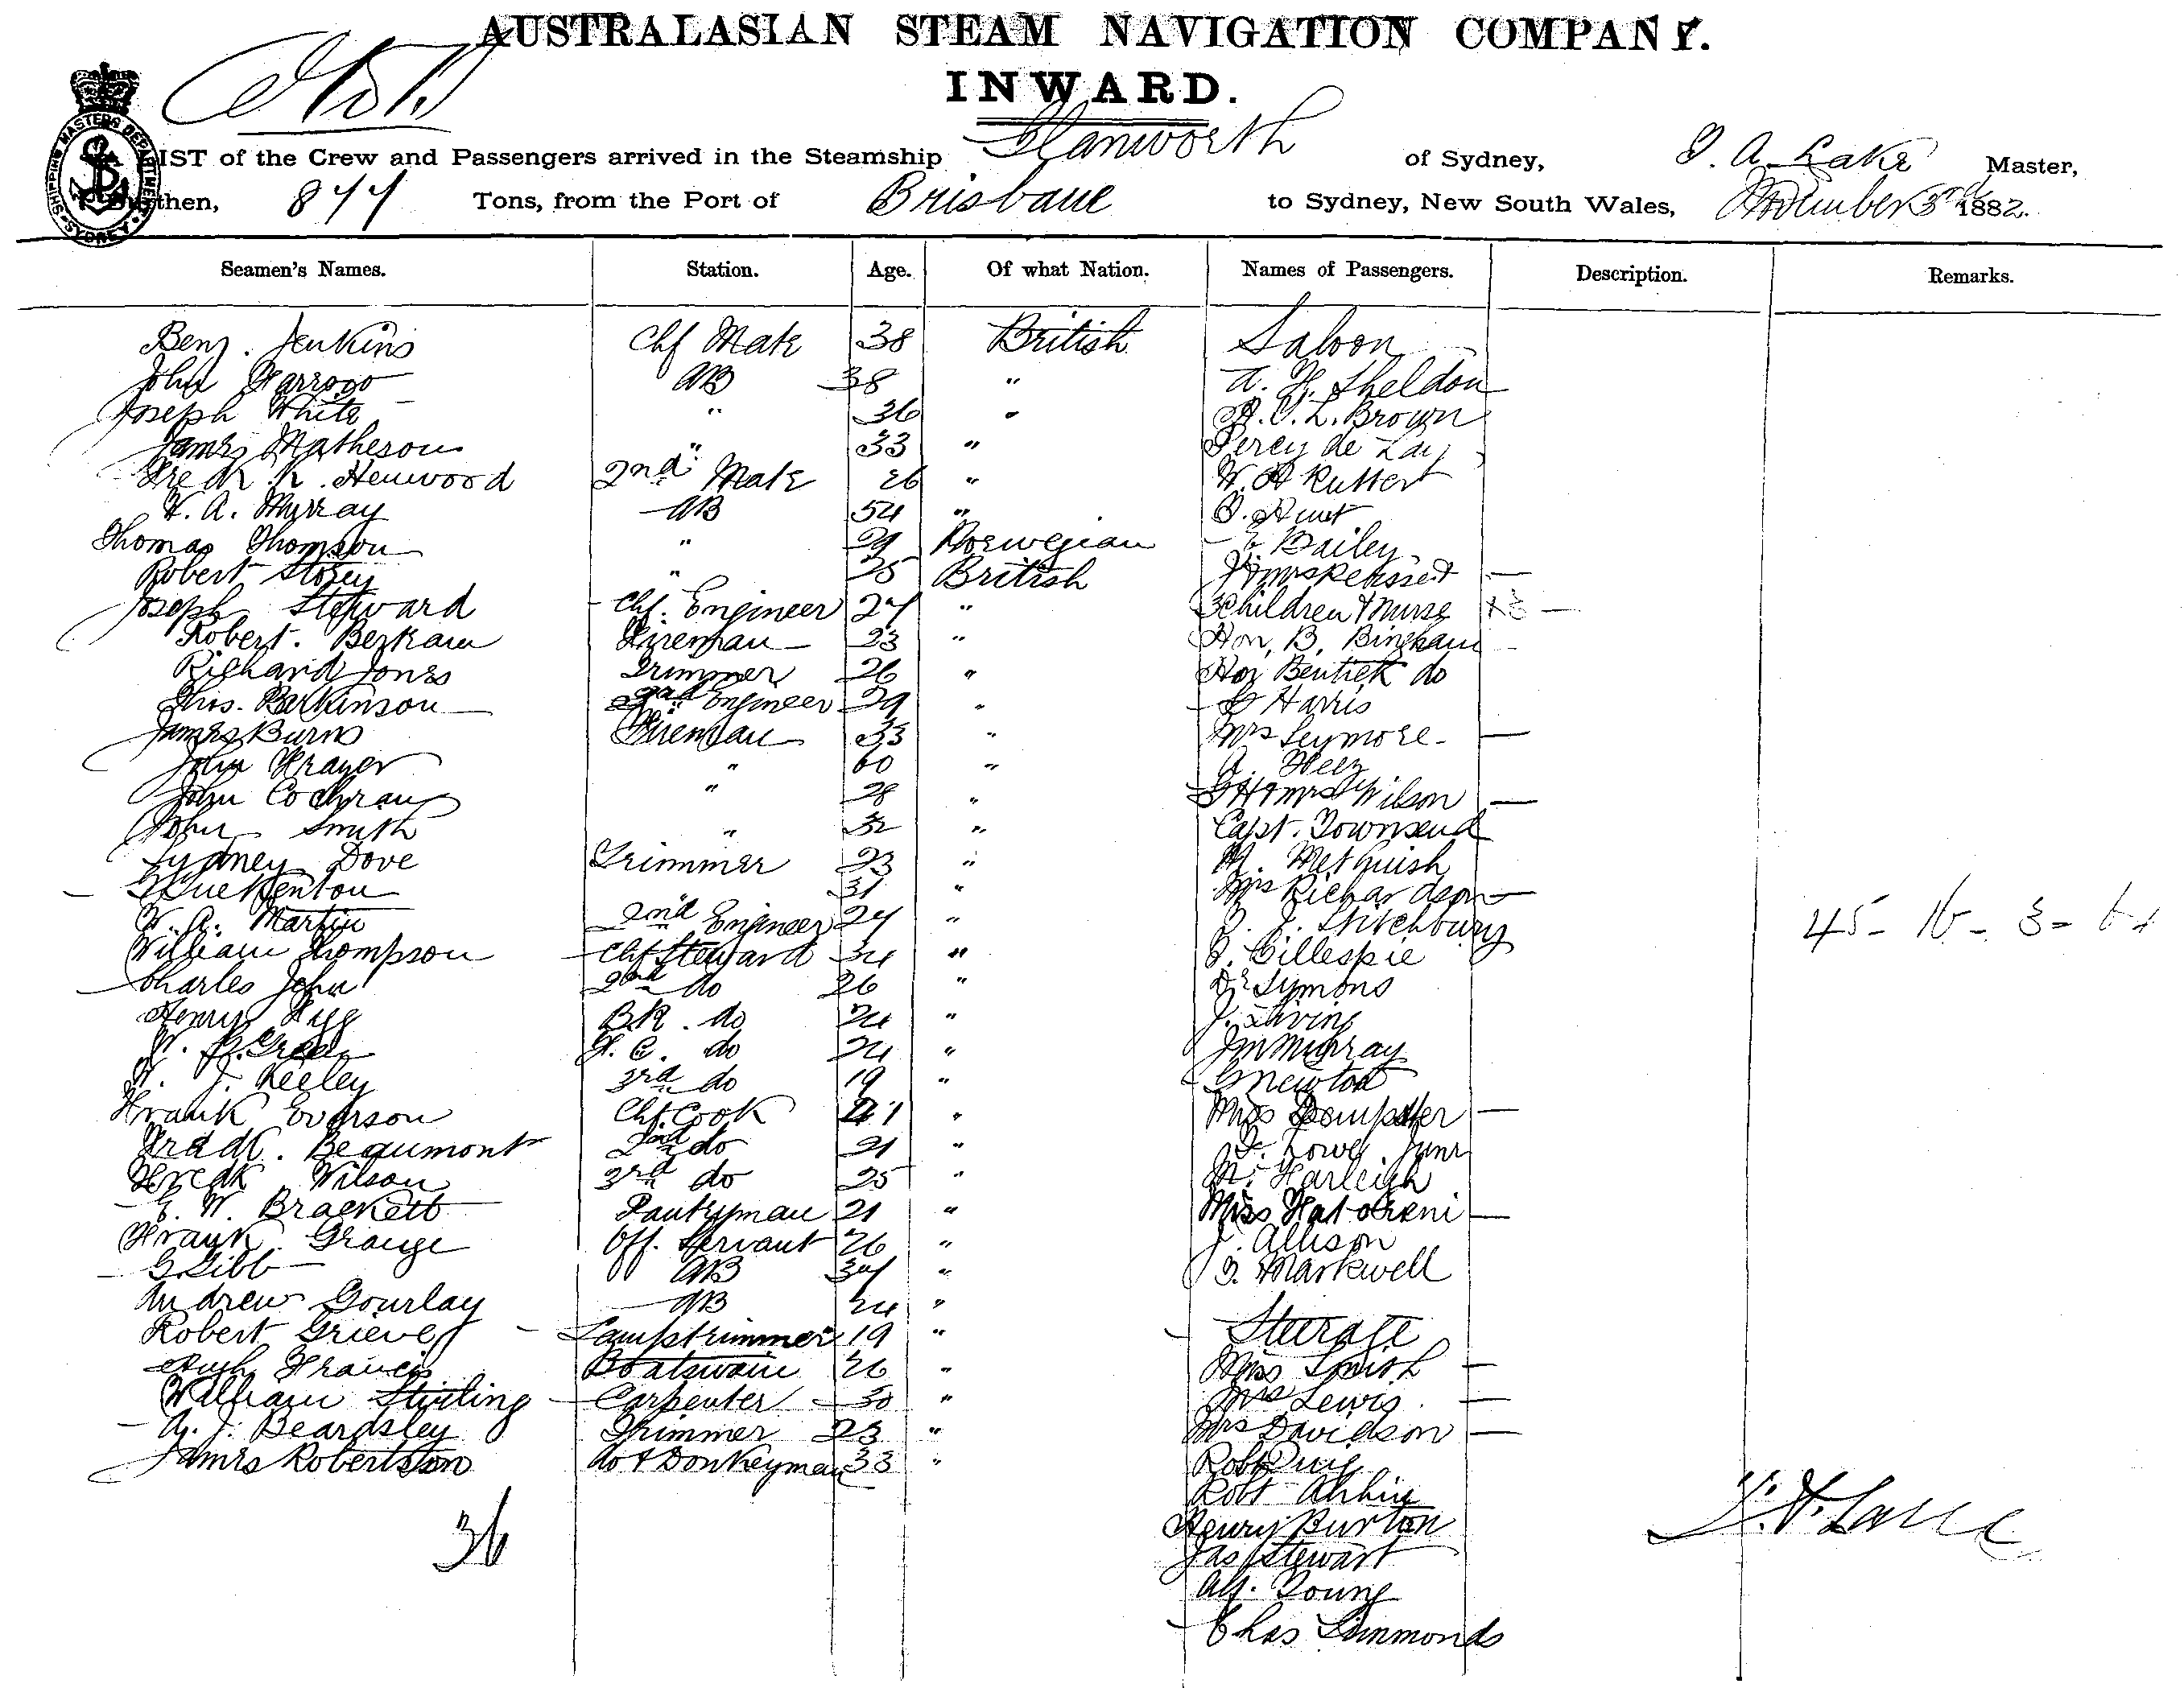 AUSTRALASIAN STEAM NAVIGATION COMPANY.
INWARD.
SHIPPING MASTERS DEPARTMENT SYDNEY
LIST of the Crew and Passengers arrived in the Steamship Glanworth of Sydney, J. A. Lake Master,
Burthen, 877 Tons, from the Port of Brisbane to Sydney, New South Wales, November 3rd 1882.
Seamen's Names. Station. Age. Of what Nation. Names of Passengers. Description. Remarks.
Benj. Jenkins Chf Mate 38 British Saloon
John AB 38 " A. H. Sheldon
Joseph White " 36 " Brown
James Matheson " 33 " Percy de Lay
Henwood 2nd Mate 26 " W. H Rutter
Murray AB 54 " Hunt
Thomas Thomson " 29 Norwegian Bailey
Robert Storey " 25 British
Joseph Steward Chf. Engineer 27 " 3 Children & Nurse
Robert. Bertram Fireman 23 " Hon, B. Bingham
Richard Jones Trimmer 26 " Hon Bentick do
Engineer 29 " Harris
James Burns Fireman 33 " Mrs Seymore
John Frazer " 60 "
John Cochran " 28 " Wilson
John Smith " 32 " Capt. Townsend
Sydney Dove Trimmer 23 "
31 " Mrs Richardson
W. A. Martin 2nd Engineer 27 " Stitchbury
William Thompson Chf Steward 34 " Gillespie
Charles John 2nd do 26 " Dr Symons
Henry BK. do 24 "
F. C. do 24 " Murray
Keeley 3rd do 19 " Newton
Frank Everson Chf. Cook 41 " Miss Dempster
Fredk. Beaumont 2nd do 21 " Lowe Junr
Fredk Wilson 3rd do 25 " Harleigh
E. W. Brackett Pantryman 21 " Miss
Frank Grange Off. Servant 26 " J. Allison
G. Gibb AB 37 " Markwell
Andrew Gourlay AB 24 "
Robert Grieve Lamptrimmer 19 " Steerage
Hugh Francis Boatswain 26 " Smith
William Stirling Carpenter 30 " Mrs Lewis
A. J. Beardsley Trimmer 23 " Mrs Davidson
James Robertson do & Donkeyman 33 " Robt
Robt
Henry Burton
Jas Stewart
Alf. Young
Chas Simmonds
36